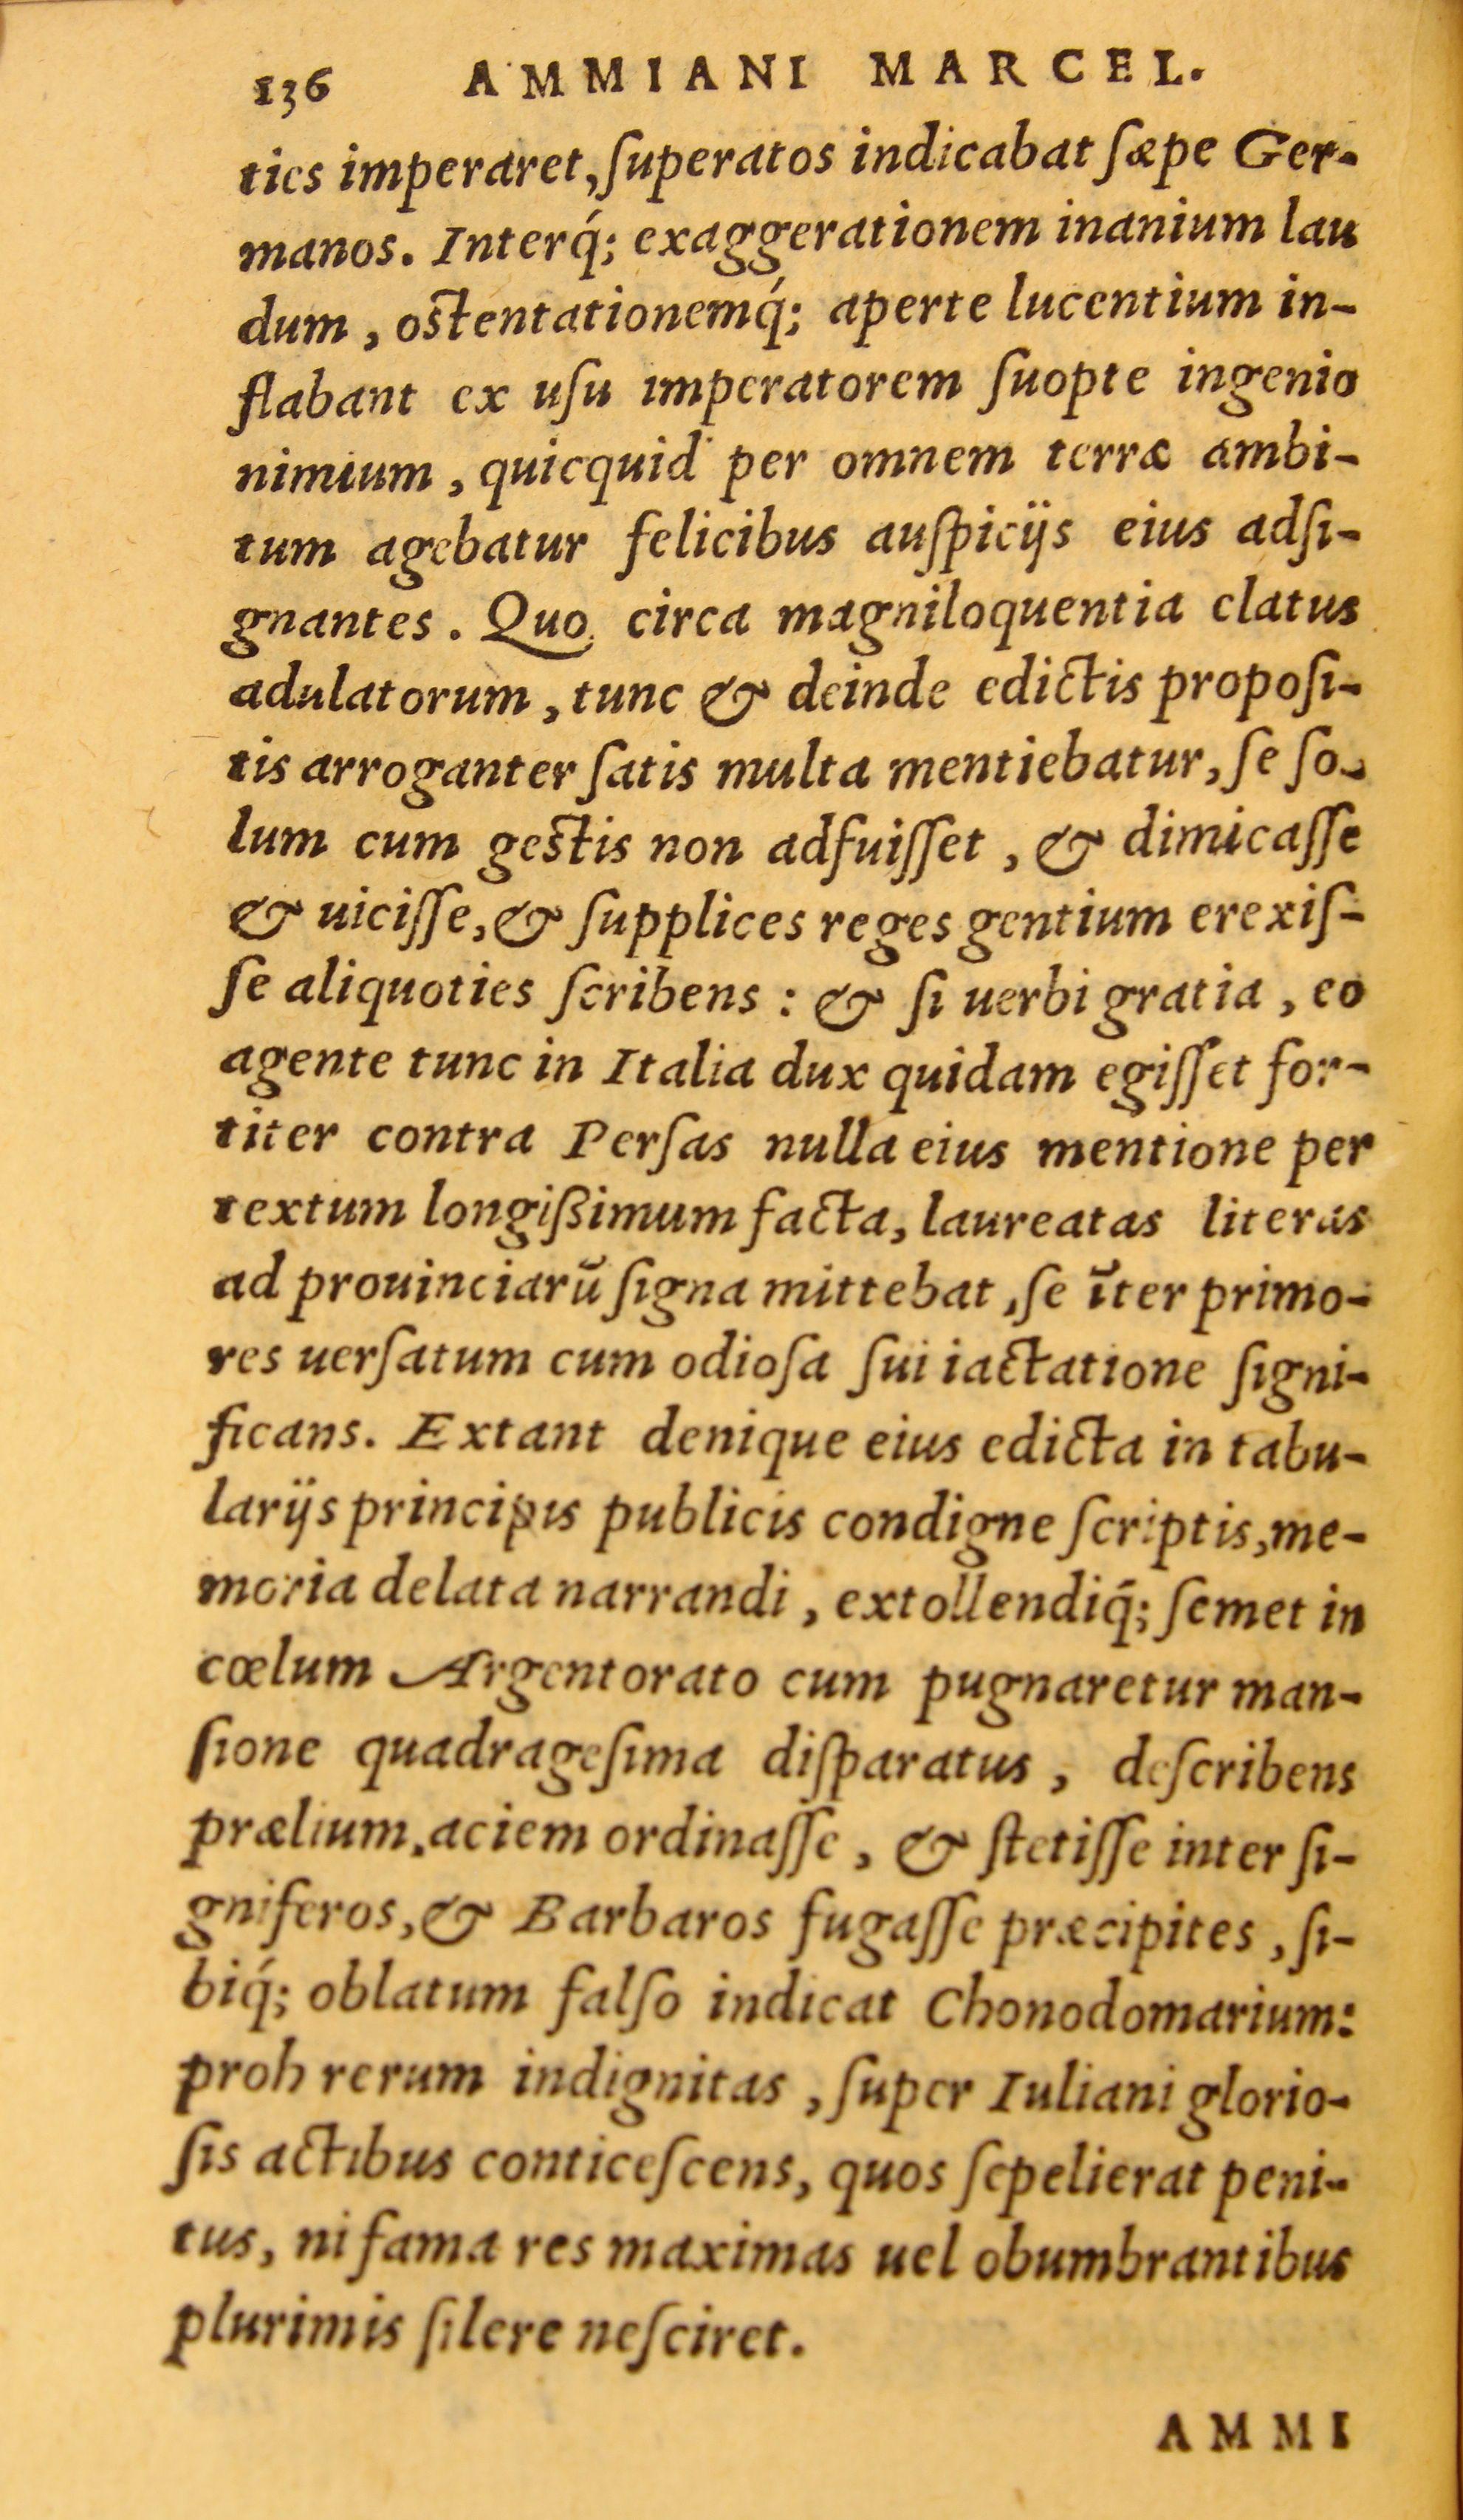 136 AMMIANI MARCEL.
ties imperaret, ſuperatos indicabat ſæpe Ger-
manos. Interq́; exaggerationem inanium lau
dum, oſtentationemq́; aperte lucentium in-
flabant ex uſu imperatorem ſuopte ingenio
nimium, quicquid per omnem terræ ambi-
tum agebatur felicibus auſpicijs eius adſi-
gnantes. Quo circa magniloquentia elatus
adulatorum, tunc & deinde edictis propoſi-
tis arroganter ſatis multa mentiebatur, ſe ſo-
lum cum geſtis non adfuiſſet, & dimicaſſe
& uiciſſe, & ſupplices reges gentium erexiſ-
ſe aliquoties ſcribens: & ſi uerbi gratia, eo
agente tunc in Italia dux quidam egiſſet for-
titer contra Perſas nulla eius mentione per
textum longißimum facta, laureatas literas
ad prouinciarũ ſigna mittebat, ſe ĩter primo-
res uerſatum cum odioſa ſui iactatione ſigni-
ficans. Extant denique eius edicta in tabu-
larijs principis publicis condigne ſcriptis, me-
moria delata narrandi, extollendiq́; ſemet in
cœlum Argentorato cum pugnaretur man-
ſione quadrageſima diſparatus, deſcribens
prælium, aciem ordinaſſe, & ſtetiſſe inter ſi-
gniferos, & Barbaros fugaſſe præcipites, ſi-
biq́; oblatum falſo indicat Chonodomarium:
proh rerum indignitas, ſuper Iuliani glorio-
ſis actibus conticeſcens, quos ſepelierat peni-
tus, ni fama res maximas uel obumbrantibus
plurimis ſilere neſciret.
AMMI